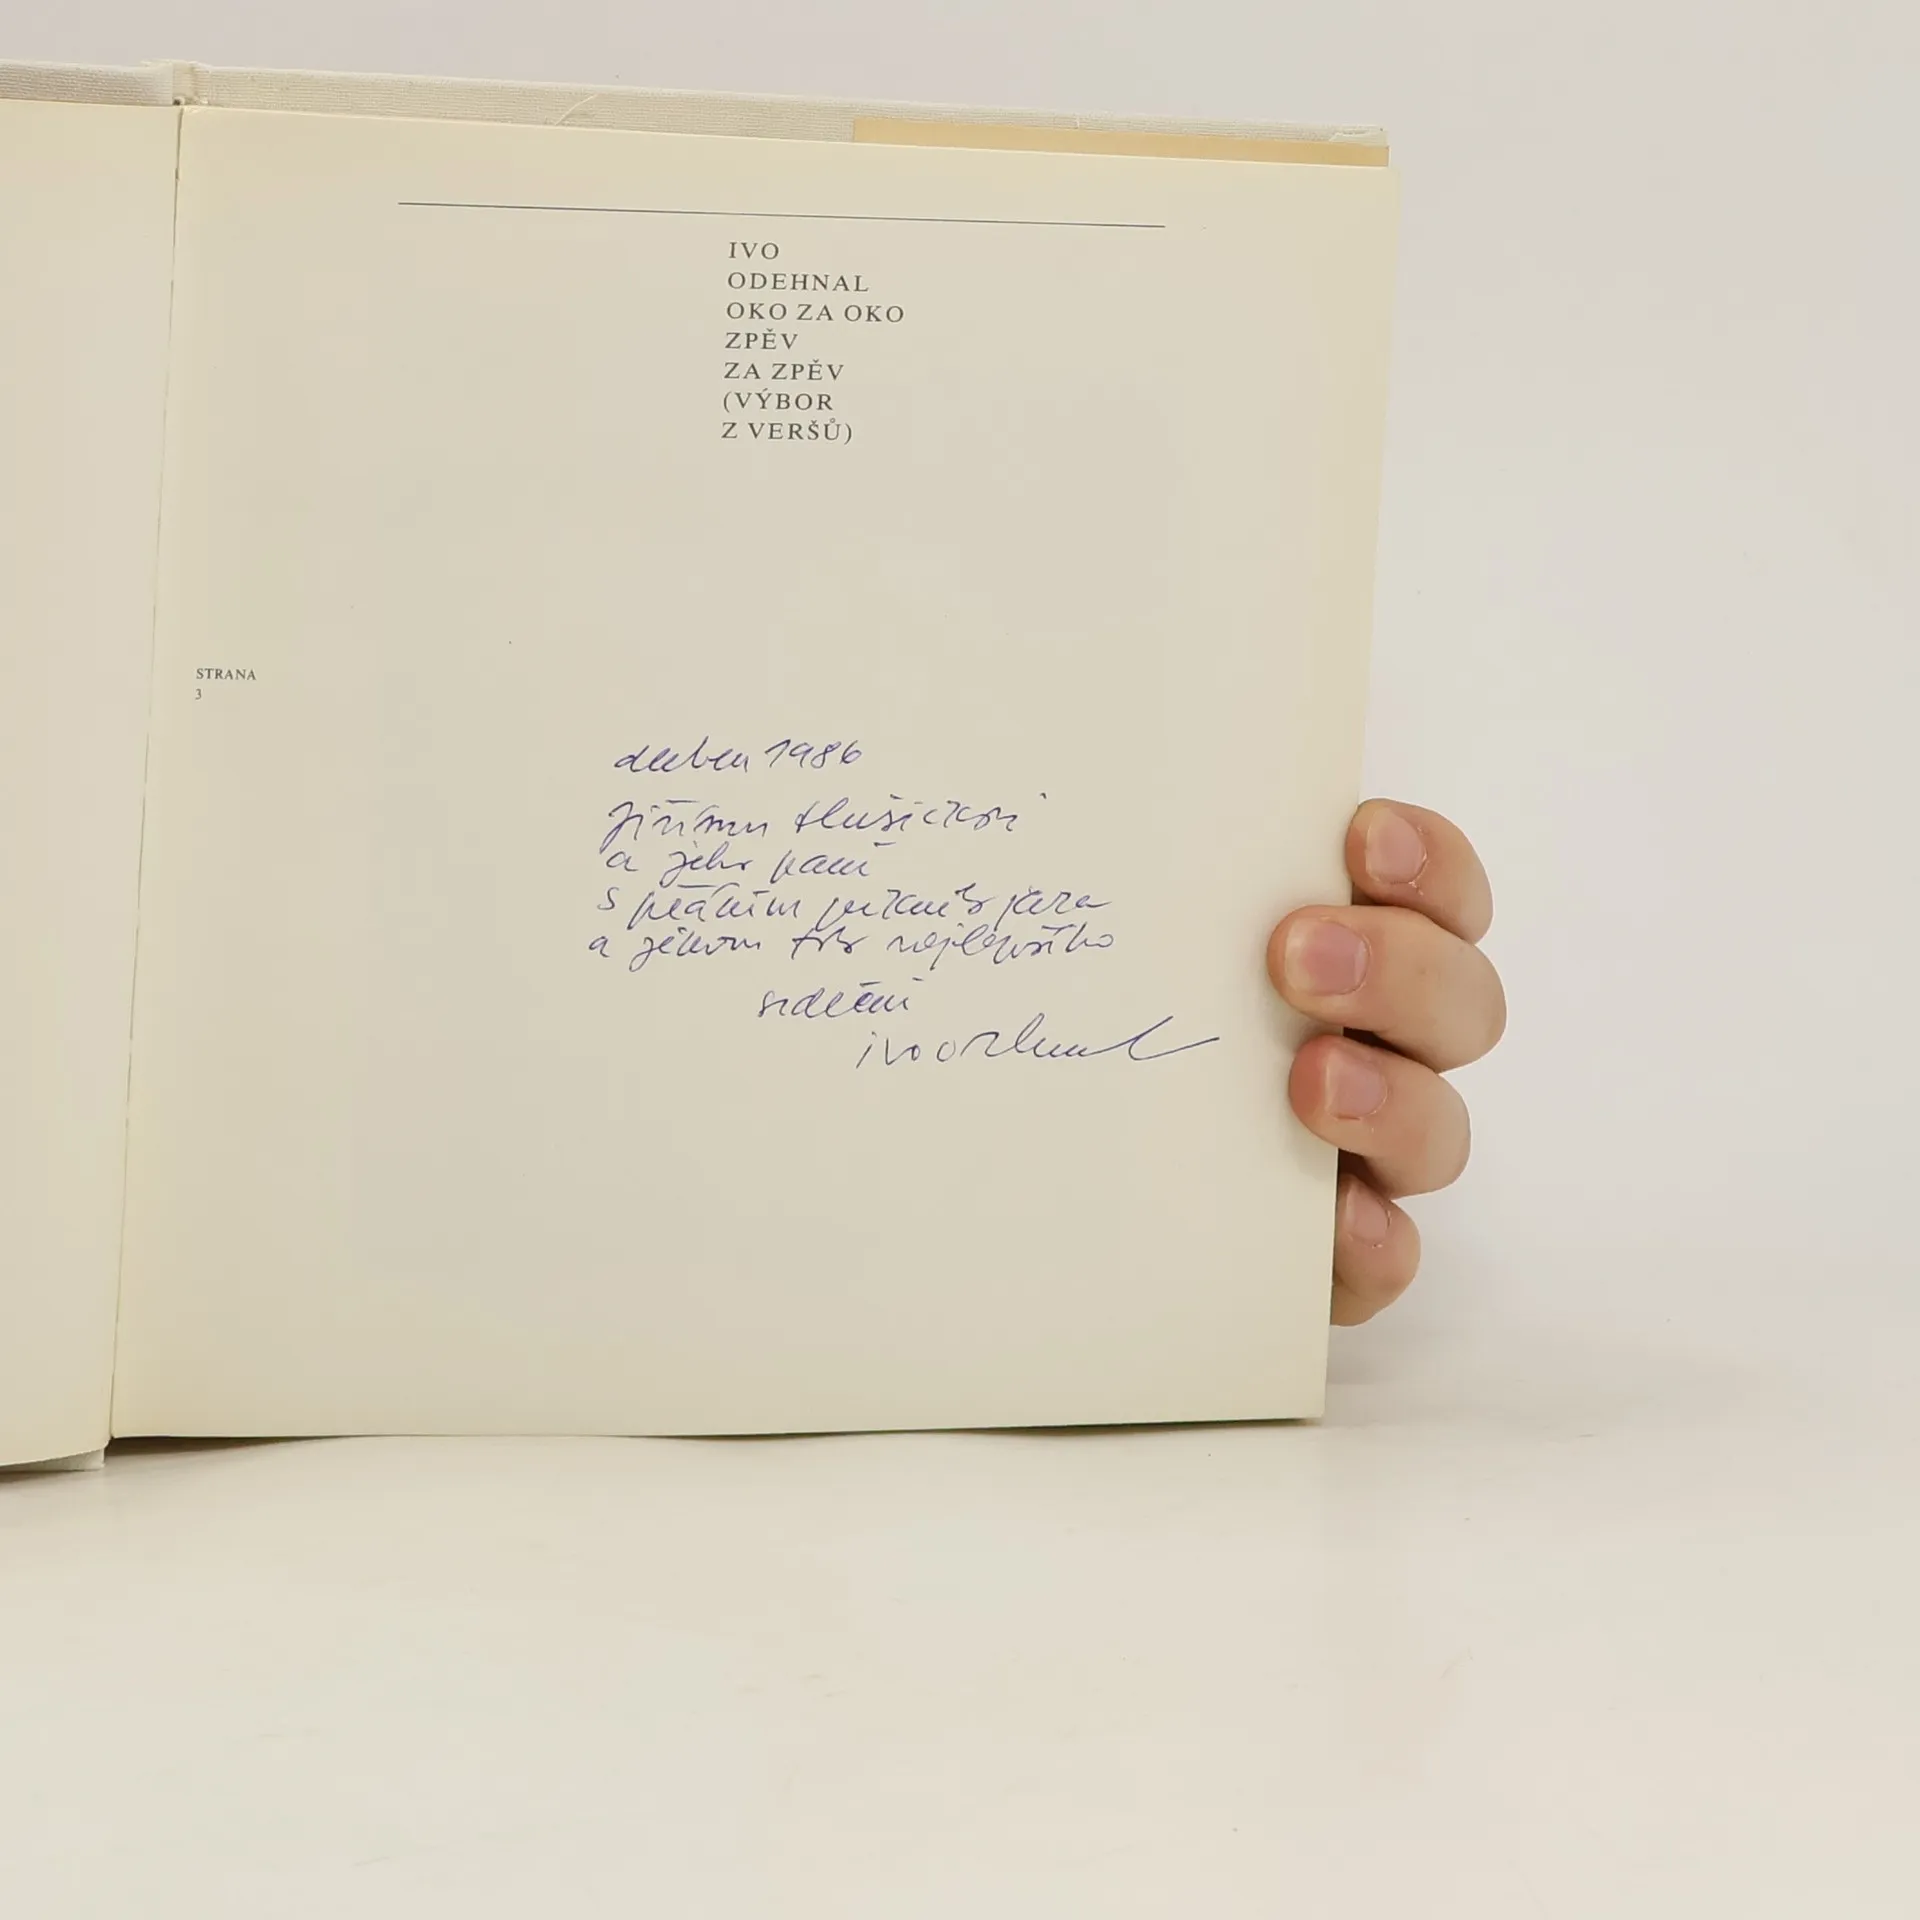 IVO
ODEHNAL
OKO ZA OKO
ZPĚV
ZA ZPĚV
(VÝBOR
Z VERŠŮ)
STRANA
3
duben 1986
Jiřímu
a jeho paní
s přáním jara
a všeho nejlepšího
srdečně
ivo odehnal